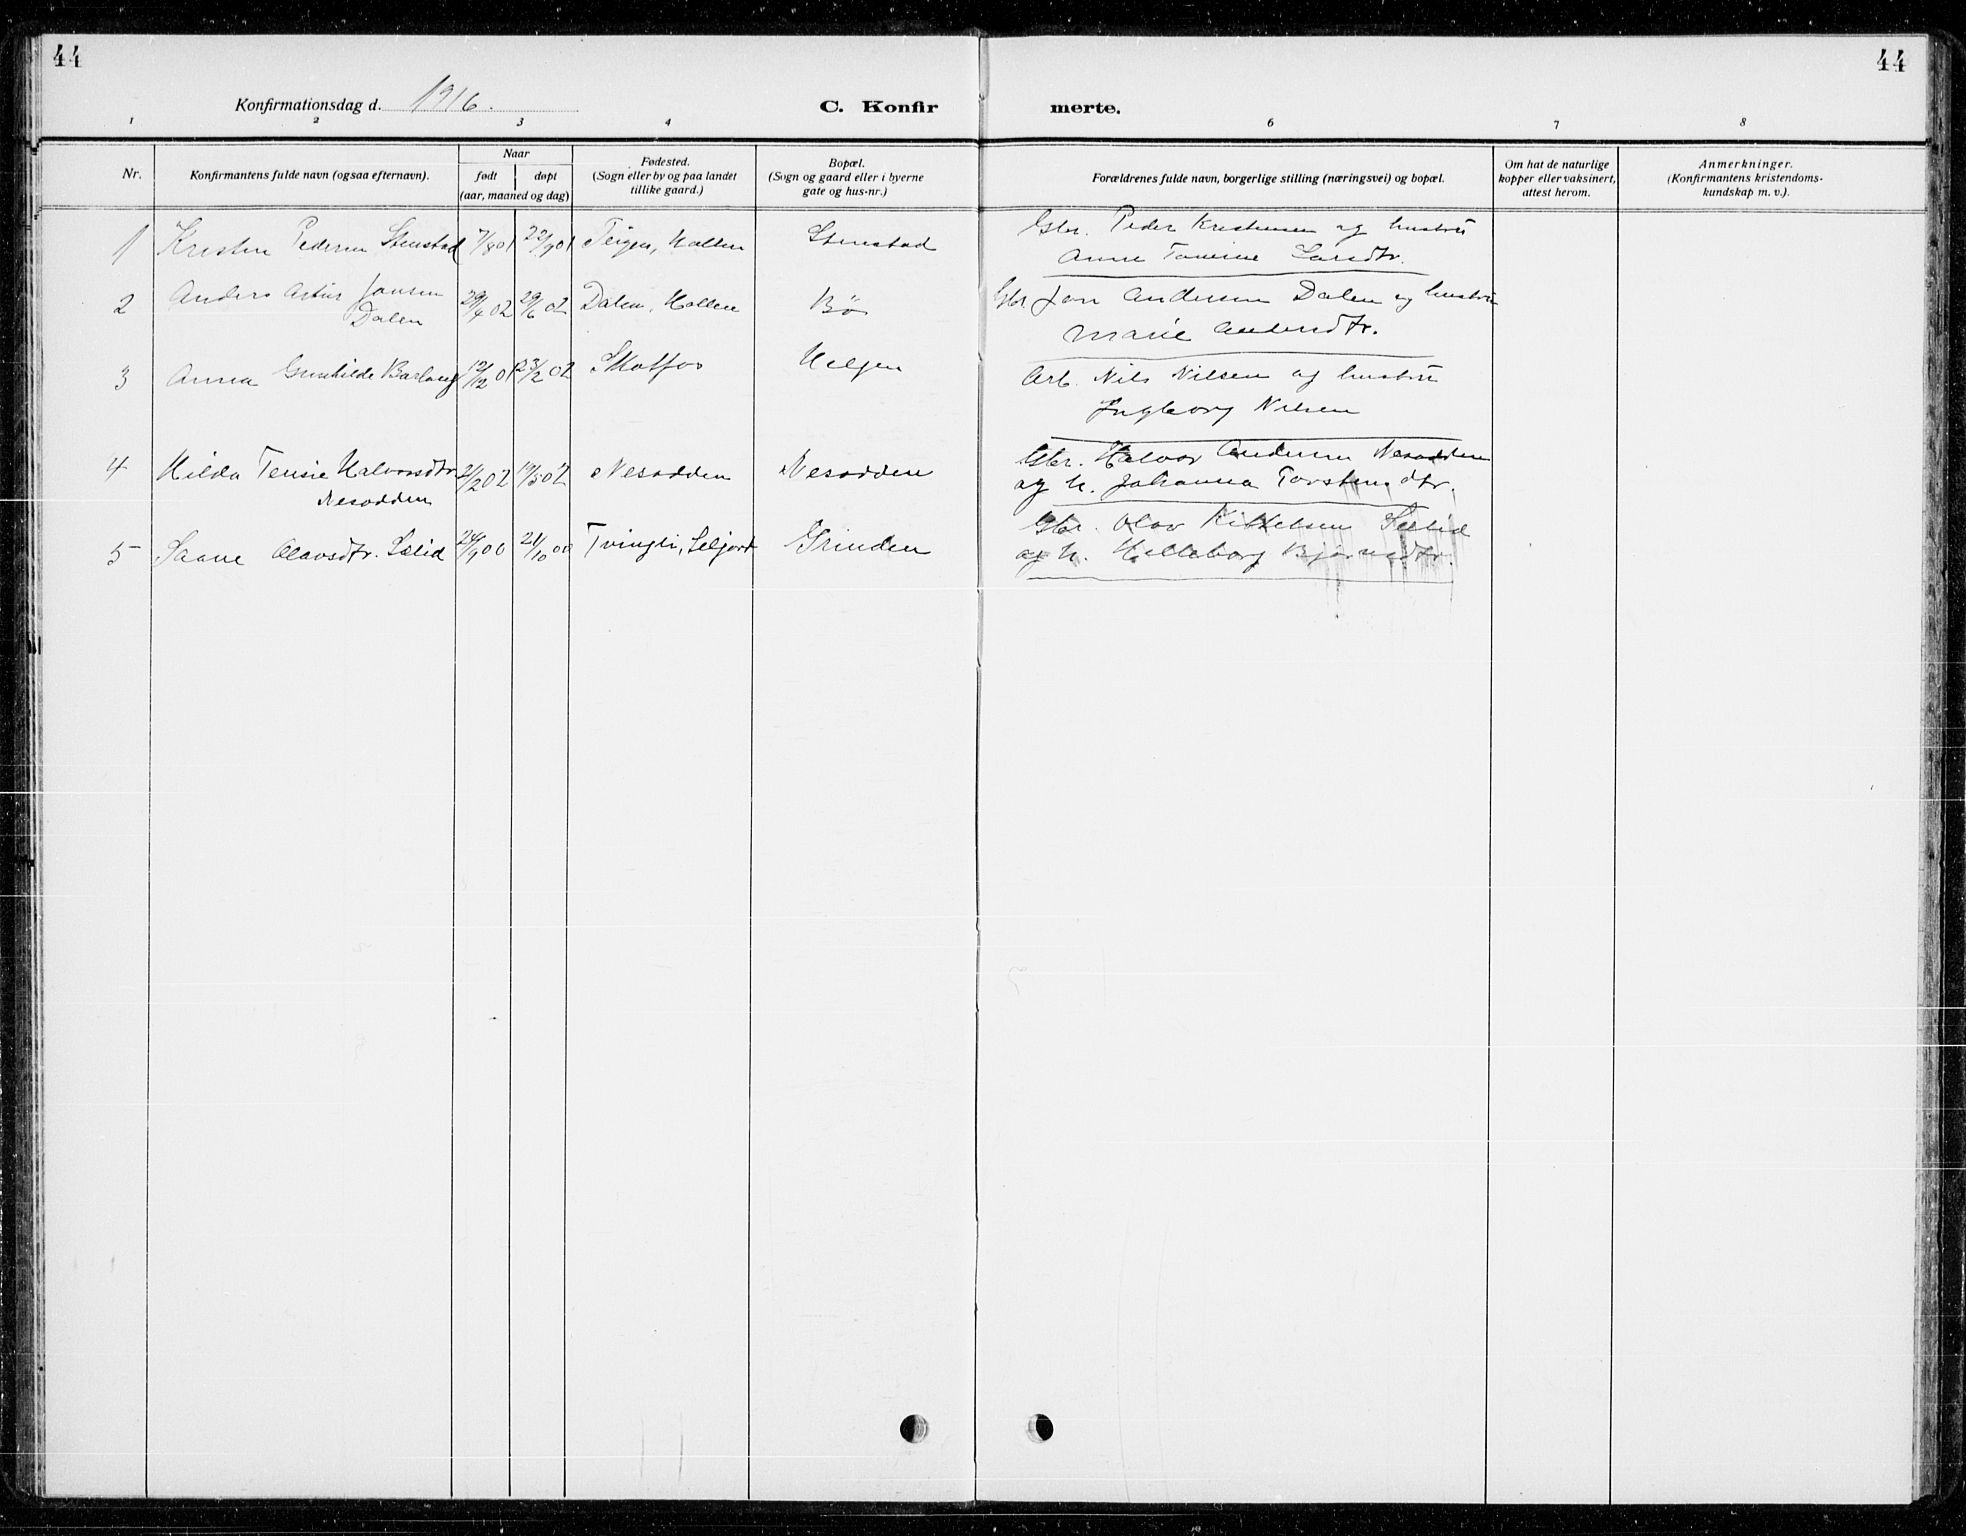 44
44
Konfirmationsdag d. 1916.
C. Konfir
merte.
1 2 3 4 6 7 8
Nr.
Konfirmantens fulde navn (ogsaa efternavn).
Naar
født døpt
(aar, maaned og dag)
Fødested.
(Sogn eller by og paa landet
tillike gaard.)
Bopæl.
(Sogn og gaard eller i byerne
gate og hus-nr.)
Forældrenes fulde navn, borgerlige stilling (næringsvei) og bopæl.
Om hat de naturlige
kopper eller vaksinert,
attest herom.
Anmerkninger.
(Konfirmantens kristendoms-
kundskap m. v.).
1 Kristen Pedersen Stenstad 7/8 01 22/9 01 Teigen, Hollen Stenstad
Gbr. Peder Kristensen og hustru
Anne Tomine Larsdtr.
2 Anders Artur Jonsen
Dalen
29/4 02 29/6 02 Dalen, Hollen Bø
Gbr. Jon Andersen Dalen og hustru
Marie
3 Anna Gunhilde Barland 12/12 01 23/2 02 Skotfos Helgen
Arb. Nils Nilsen og hustru
Ingeborg Nilsen
4 Hilda Tensie Halvorsdtr.
Nesodden
21/2 02 19/5 02 Nesodden Nesodden
Gbr. Halvor Andersen Nesodden
og h. Johanna Torstensdtr.
5 Saave Olavsdtr. Sælid 24/9 00 21/10 00 Tvingli, Seljord Grinden
Gbr. Olav Kittelsen Sælid
og h. Helleborg Bjørnsdtr.